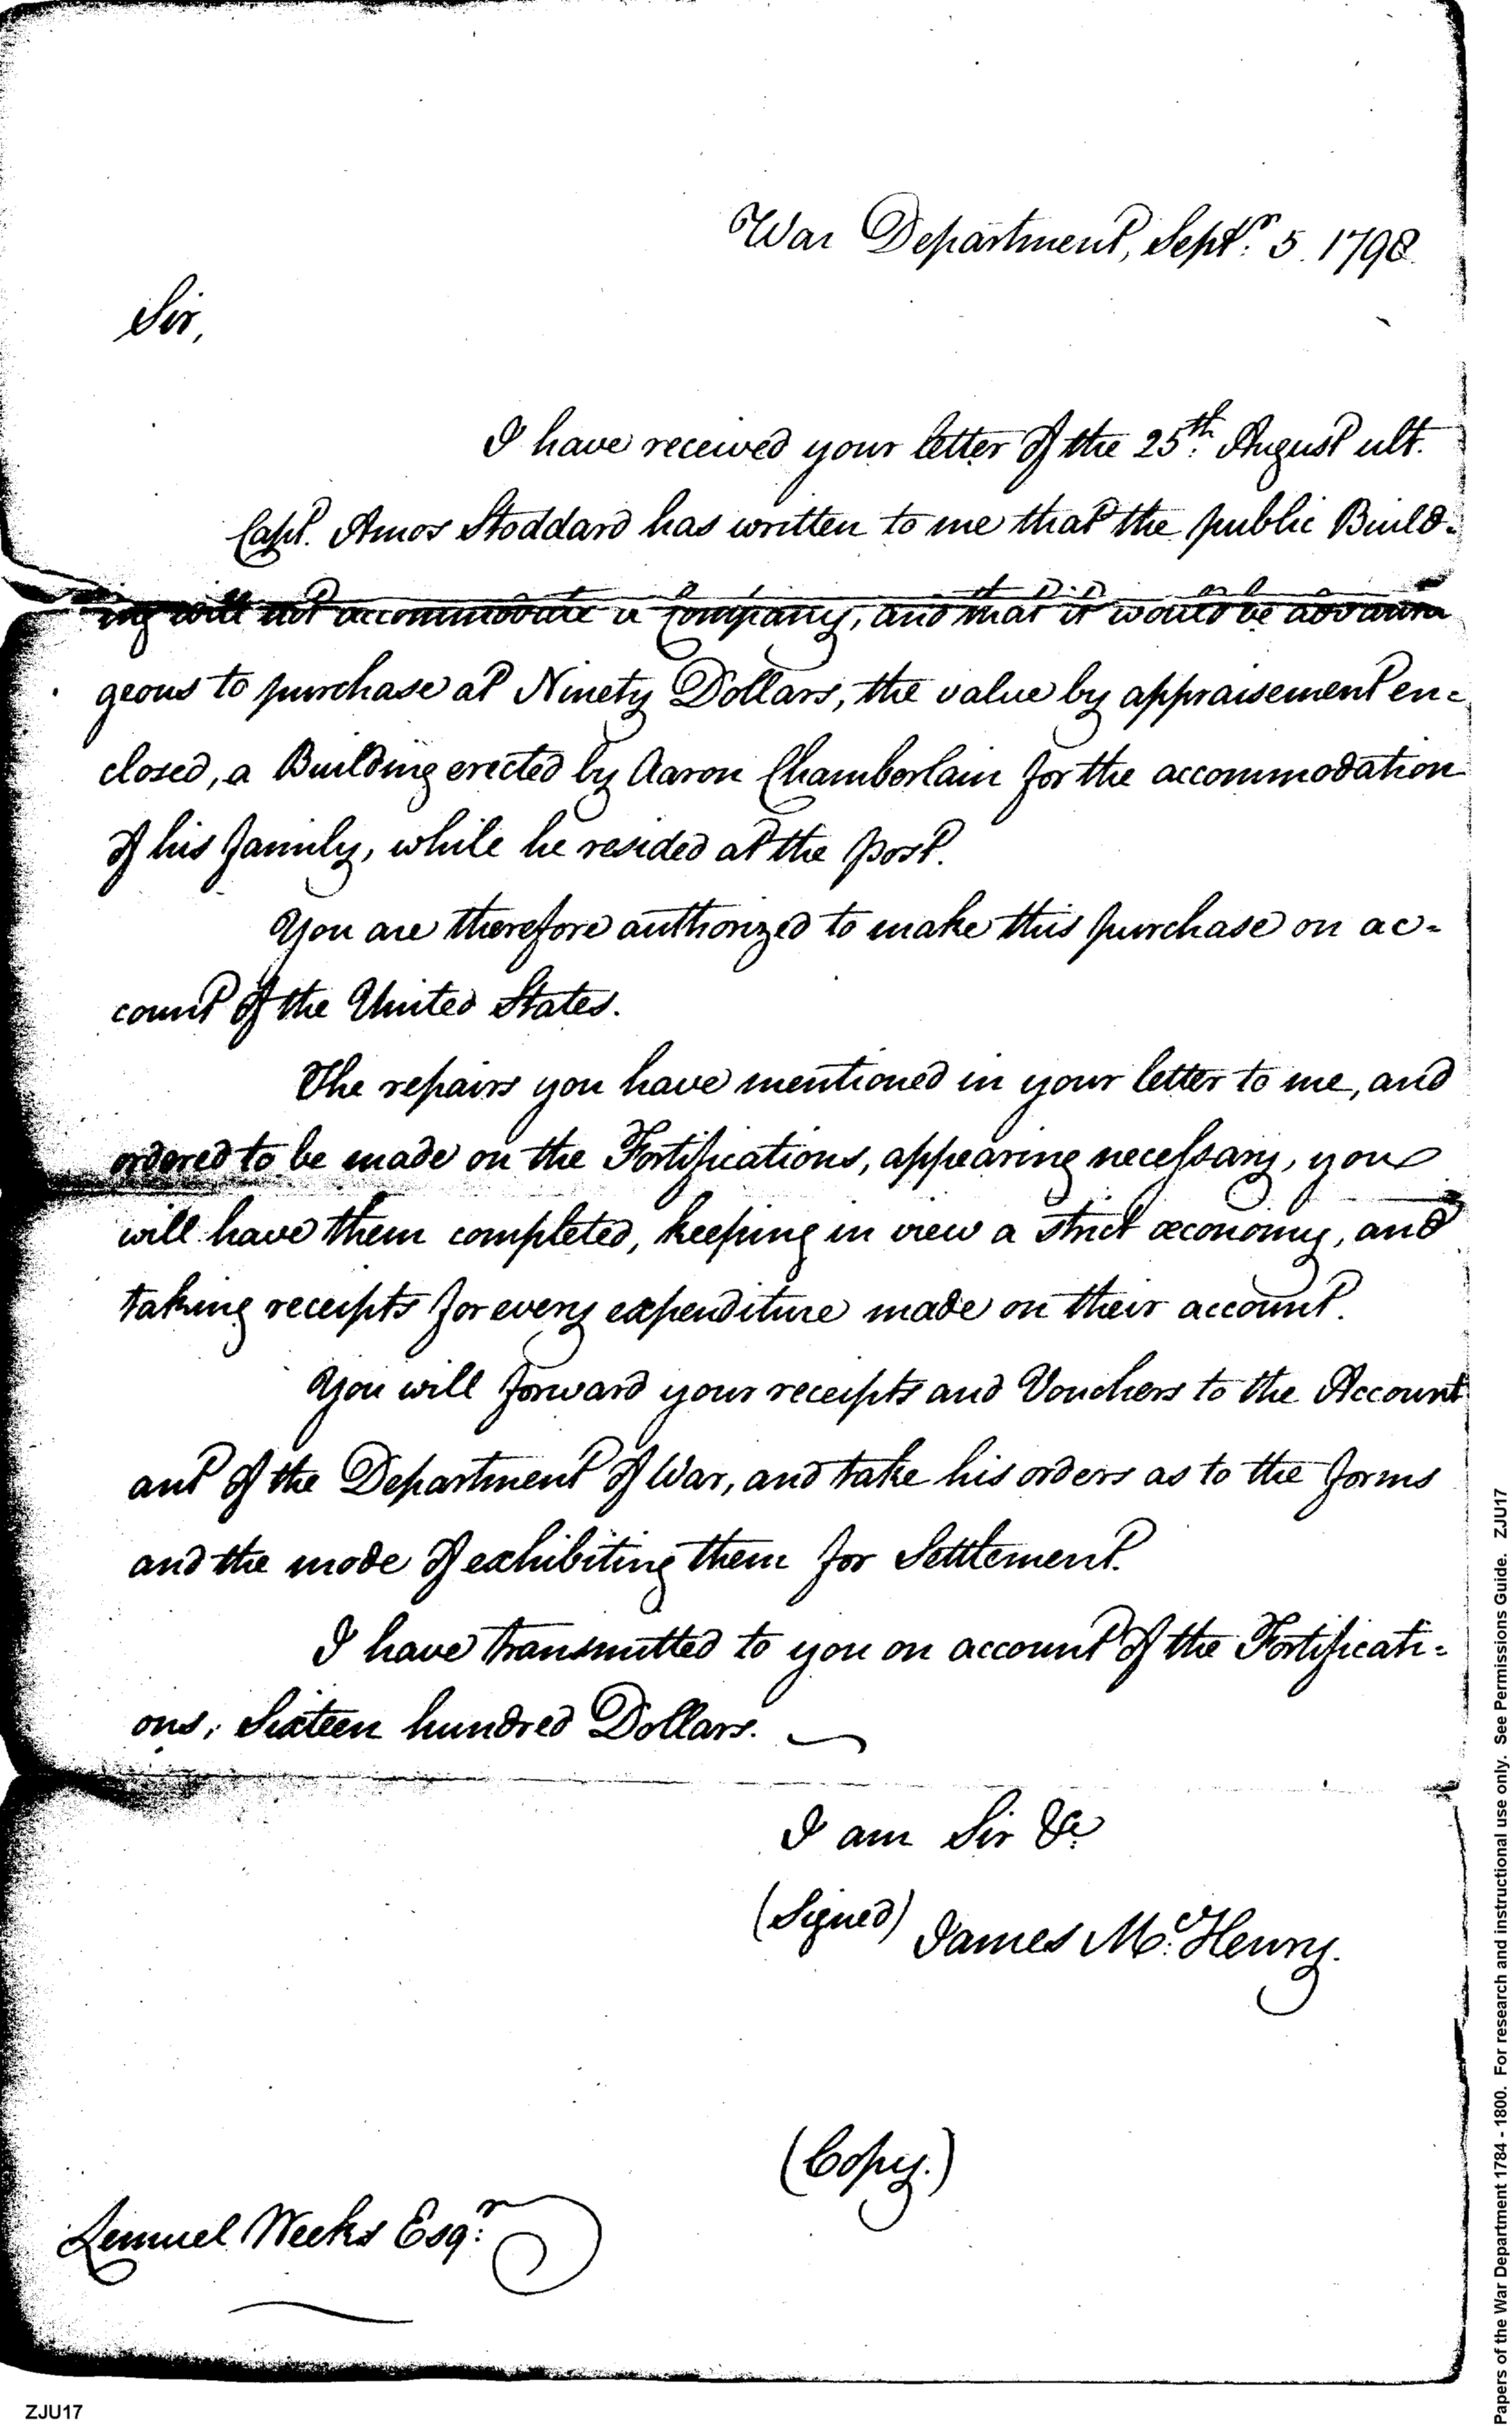 War Department, Septr. 5. 1798.
Sir,
I have received your letter of the 25th. August ult.
Capt. Amos Stoddard has written to me that the public Build-
ing will not accommodate a Company, and that it would be advanta
geous to purchase at Ninety Dollars, the value by appraisement en-
closed, a Building erected by Aaron Chamberlain for the accommodation
of his family, while he resided at the post.
You are therefore authorized to make this purchase on ac-
count of the United States.
The repairs you have mentioned in your letter to me, and
ordered to be made on the Fortifications, appearing necessary, you
will have them completed, keeping in view a strict œconomy, and
taking receipts for every expenditure made on their account.
You will forward your receipts and Vouchers to the Account
ant of the Department of War, and take his orders as to the forms
and the mode of exhibiting them for Settlement.
I have transmitted to you on account of the Fortificati-
ons, Sixteen hundred Dollars.
I am Sir &c.
(Signed) James McHenry.
(Copy.)
Lemuel Weeks Esqr.
ZJU17
Papers of the War Department 1784 - 1800. For research and instructional use only. See Permissions Guide. ZJU17